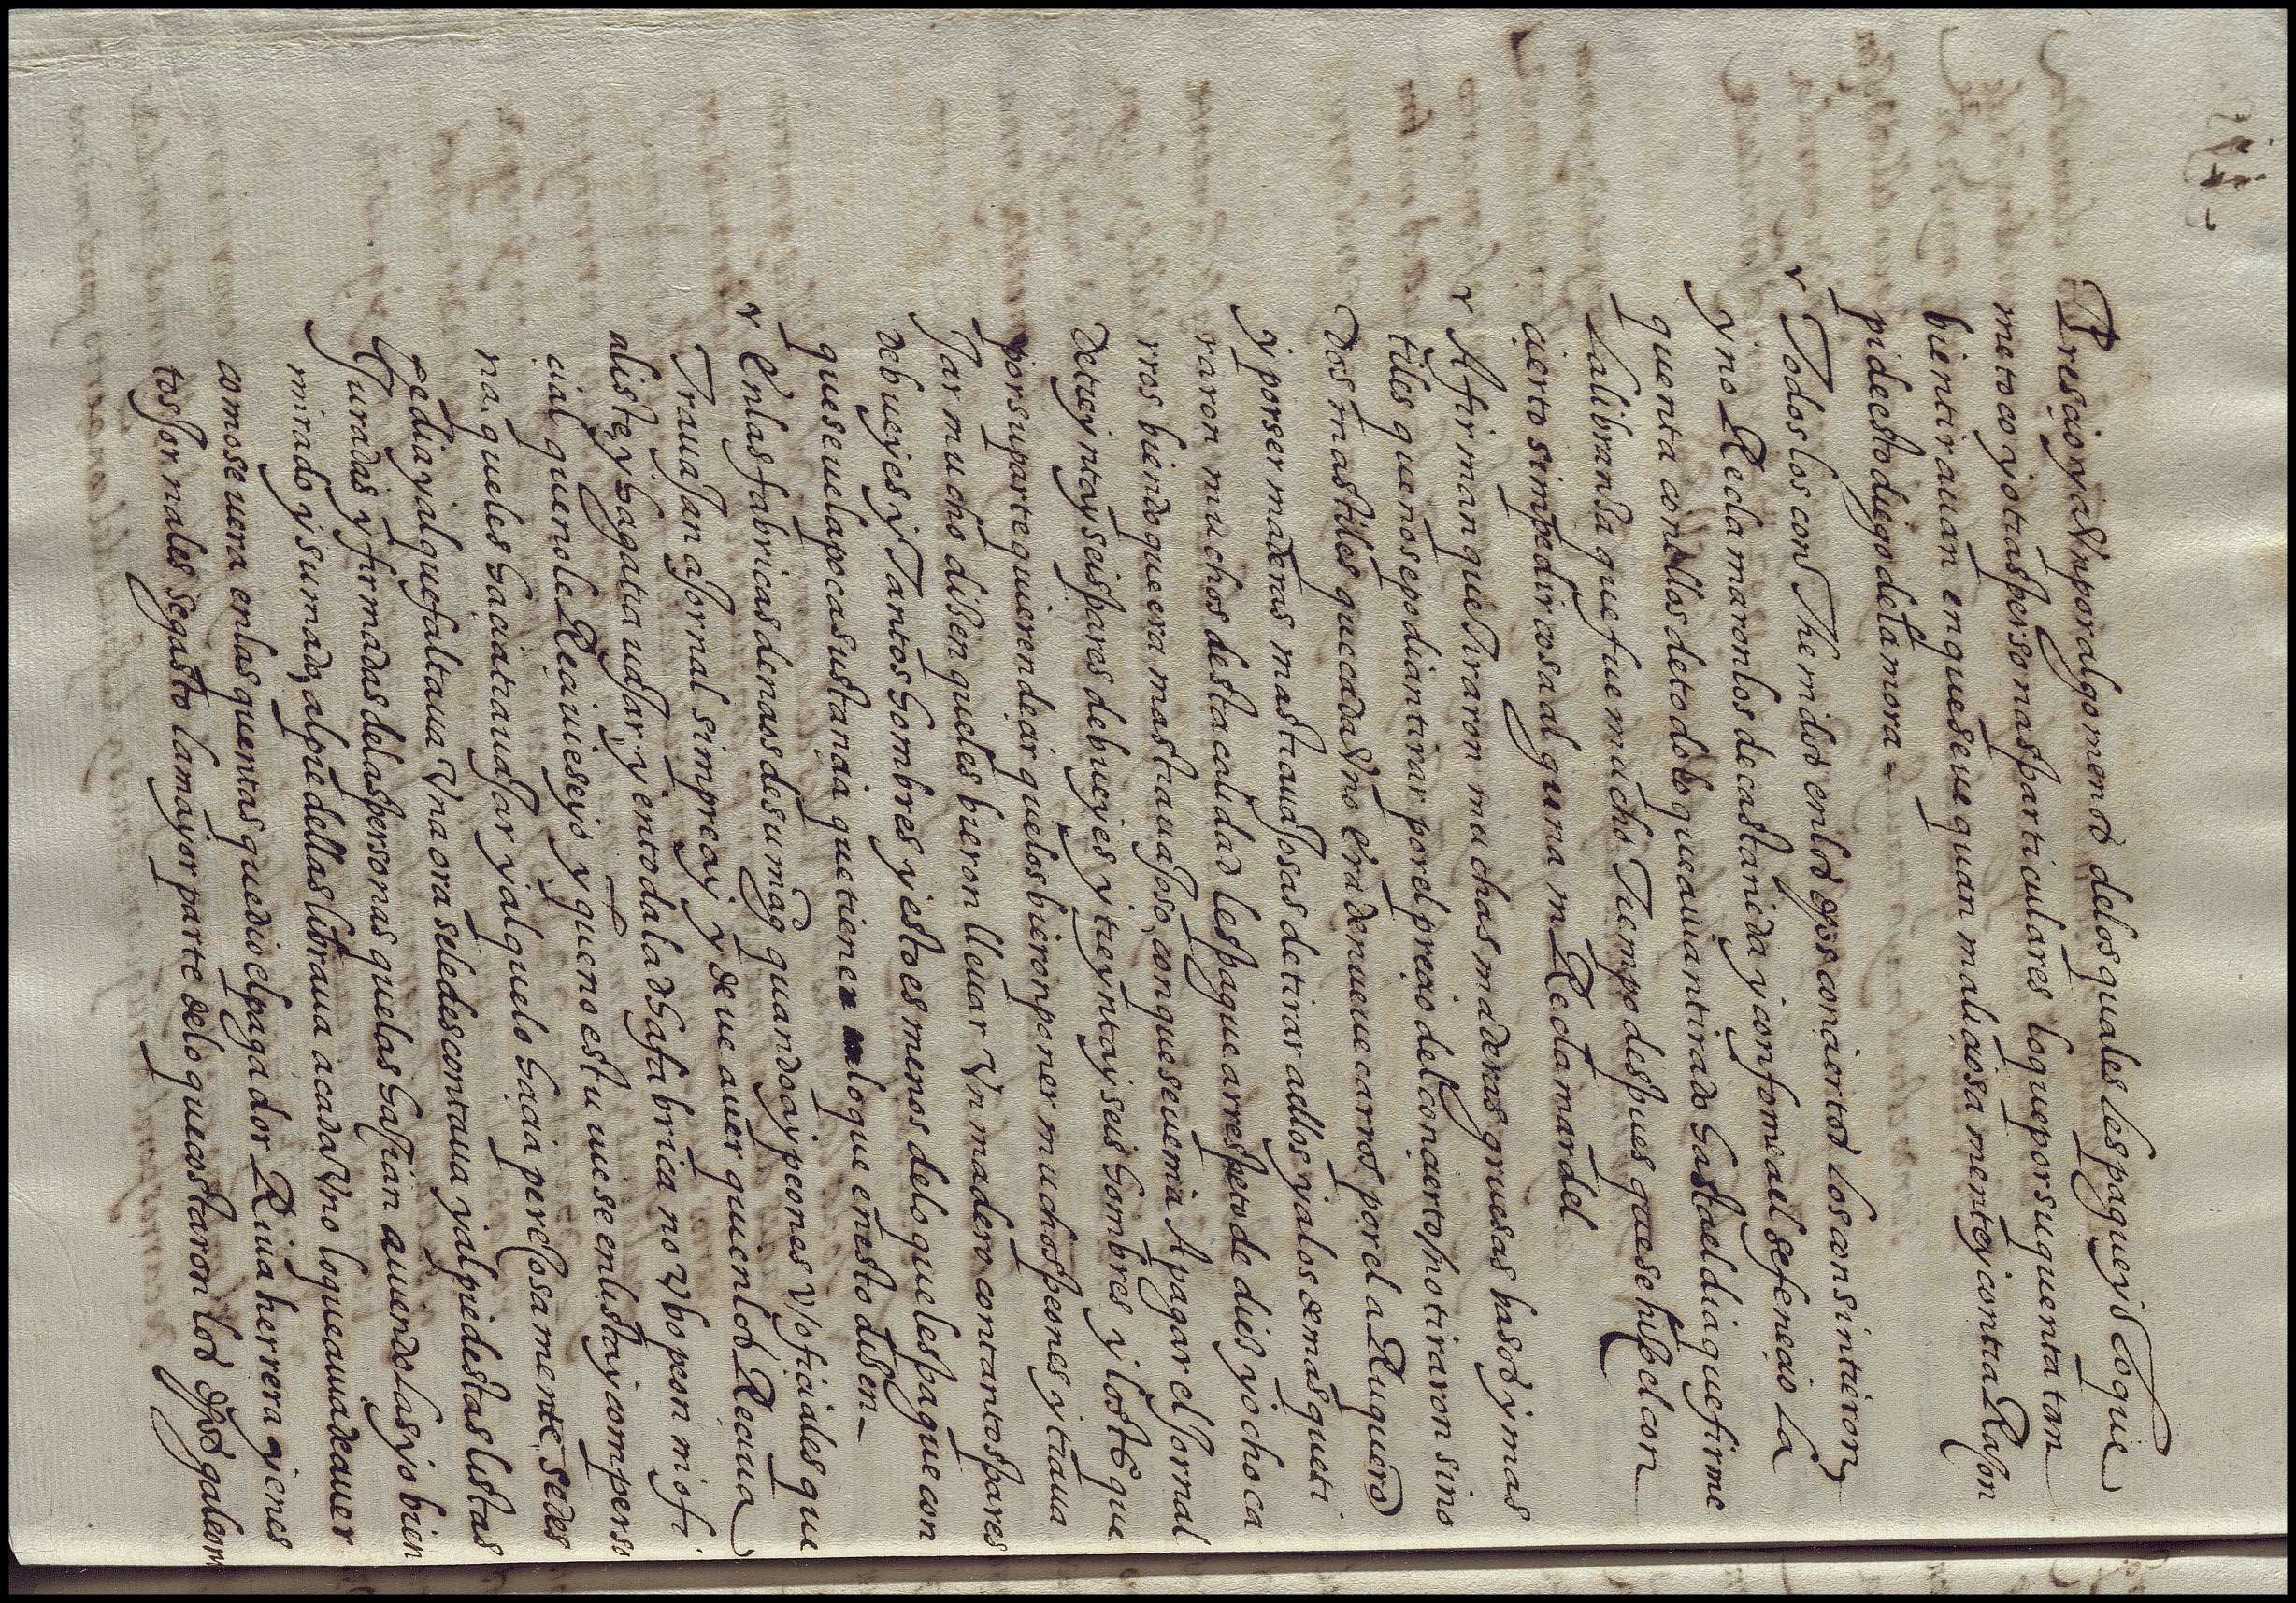 Presçio y a Vn por algo menos de los quales les pague yo lo que
meto co y otras personas particulares lo que por su quenta tan
bien tirauan en que se ve quan maliçiosa mente y contra Rason
pide esto diego de la mora
Todos los con Thenidos en los dhos conçiertos los consintieron
y no Reclamaron los de castañeda y conforme a el se feneçio La
quenta con ellos de todo lo que auian tirado hasta el dia que firme
La libransa que fue mucho Tiempo despues que se hiso el con
çierto sin pedir cosa alguna ni Reclamar del
Afirman que Tiraron muchas maderas gruesas basos y mas
tiles que no se podian tirar por el preçio del conçierto / no tiraron sino
dos mastiles que cada Vno era de nueue carros por el a Ruquero
y por ser maderas mas trauajosas de tirar a ellos y a los demas que ti
raron muchos desta calidad les pague a rrespeto de dies y ocho ca
rros biendo que era mas trauajoso, con que se uenia A pagar el jornal
de treynta y seis pares de bueyes y treynta y seis hombres y los que
por su parte quieren deçir que los hicieron poner muchos peones y traua
jar mucho disen que les hisieron lleuar Vn madero con tantos pares
de bueyes y Tantos hombres y esto es menos de lo que les pague con
que se ve la poca sustançia que tiene lo que en esto disen
En las fabricas de naos de su magd quando ay peones V ofiçiales que
Trauajan a jornal sienpre ay y deue auer quien los Reciua
a liste y haga trauajar y en toda la dha fabrica no Vbo peon ni ofi
çial que no le Reçiuiese yo y que no estuuiese en lista y con perso
na que les haçia trauajar y al que lo haçia peresosamente se des
pedia y al que faltaua Vna ora se le descontaua y al pie destas listas
Juradas y firmadas de las personas que las hasian auiendolas yo bien
mirado y sumado, al pie dellas libraua a cada Vno lo que auia de auer
como se uera en las quentas que dio el pagador Riua herrera y en es
tos jornales se gasto la mayor parte de lo que costaron los dhos galeon